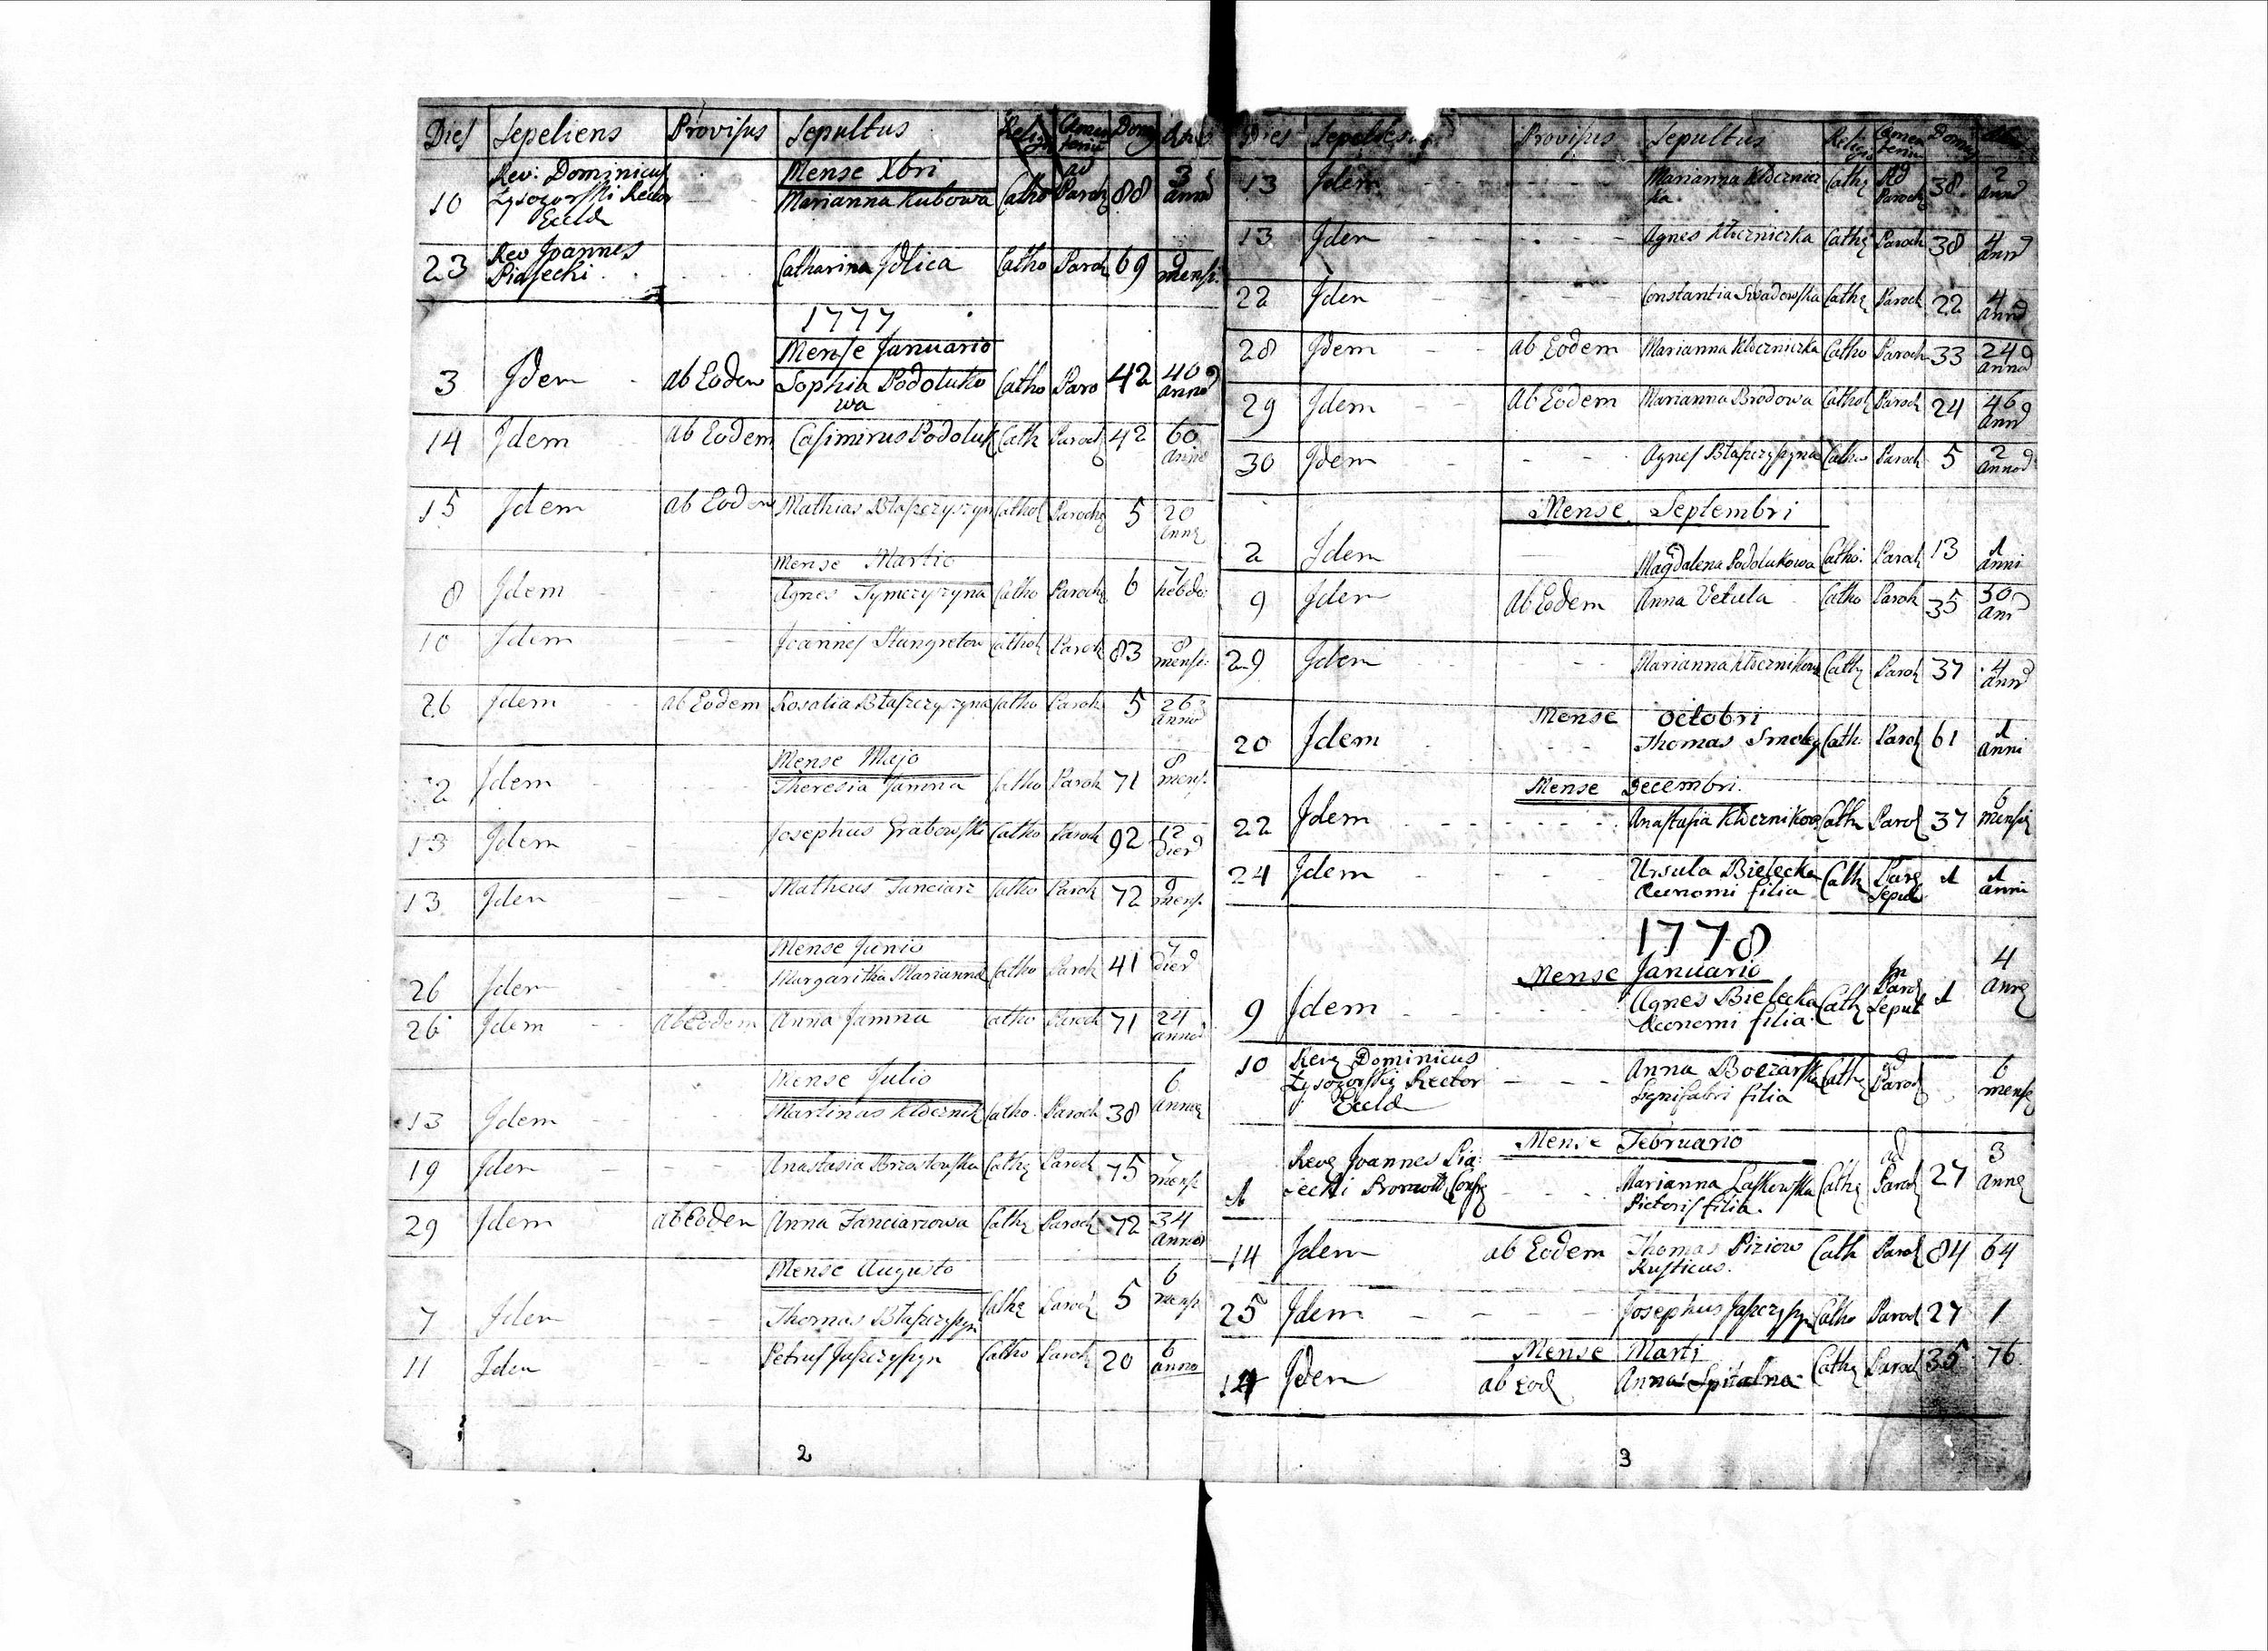 Dies Sepeliens Provisus Sepultus Relig Cemen Domg Anng
teriu
Rev: Dominicus Mense Xbri ad 3
10 Łysogorski Rector Marianna Kubowa Catho Paroch 88 Annor
Eccla
23 Rev Joannes Catharina Jdlica Catho Paroch 69 9
Piasecki mensi.
1777
Mense Januario
3 Jdem ab Eodem Sophia Podoluko Catho Paro 42 40
wa anno
14 Jdem ab Eodem Casimirus Podoluk Cath Paroch 42 60
anno
15 Jdem ab Eodem Mathias Błaszczyszyn Cathol Paroch 5 20
Anng
Mense Martio
8 Jdem Agnes Tymczyszyna Catho Paroch 6 7
hebdo
10 Jdem Joannes Stangretow Cathol Paroch 83 8
mensi.
26 Jdem ab Eodem Rosalia Błaszczyszyna Catho Paroch 5 26
annor
Mense Majo
2 Jdem Theresia Jamna Catho Paroch 71 8
mens.
13 Jdem Josephus Grabowski Catho Paroch 92 12
dier
13 Jdem Matheus Tanciarz Catho Paroch 72 9
mens.
Mense Junio
26 Jdem Margaritha Marianna Catho Paroch 41 7
dier
26 Jdem Ab Eodem Anna Jamna Catho Paroch 71 24
annor
Mense Julio
13 Jdem Martinus Klucznik Catho. Paroch 38 6
Annor
19 Jdem Anastasia Brzostowska Cathg Paroch 75 7
mens.
29 Jdem ab Eodem Anna Tanciarzowa Cathg Paroch 72 34
Annor
Mense Augusto
7 Jdem Thomas Błaszczyszyn Cathg Paroch 5 6
mens.
11 Jdem Petrus Jaszczyszyn Catho Paroch 20 6
anno
2
Dies Sepeliens Provisus Sepultus Religio Cemen Domg
teriu
13 Jdem Marianna Klucznicz Cathg Ad 38 2
ka Paroch Annor
13 Jdem Agnes Kluczniczka Cathg Paroch 38 4
Annor
22 Jdem Constantia Swadowska Cathg Paroch 22 4
Annor
28 Jdem ab Eodem Marianna Kluczniczka Catho Paroch 33 24
annor
29 Jdem Ab Eodem Marianna Brodowa Cathol Paroch 24 46
Annor
30 Jdem Agnes Błaszczyszyna Catho Paroch 5 2
Annor
Mense Septembri
2 Jdem Magdalena Podolukowa Catho: Paroch 13 1
Anni
9 Jdem Ab Eodem Anna Vetula Catho Paroch 35 50
Anr
29 Jdem Marianna Klucznikowa Cathg Paroch 37 4
Annr
Mense octobri
20 Jdem Thomas Smoleg Cath. Paroch 61 1
Anni
Mense Decembri.
22 Jdem Anastasia Klucznikowa Cath Paroch 37 6
Mensig
24 Jdem Ursula Bielecka Cath Parg 1 1
Œconomi filia Sepult anni
1778
Mense Januario
9 Jdem Agnes Bielecka Cathg In Parog Sepult 1 4
Œconomi filia. Anng
10 Revg Dominicus Anna Boczarska Cathg ad 6
Łysogorski Rector Lignifabri filia Paroch mensg
Eccla
Mense Februario
1 Revg Joannes Pia: Marianna Laskowska Cathg ad Paroch 27 3
secki Promott Consg Pictoris filia. Anng
14 Jdem ab Eodem Thomas Piziow Cath Paroch 84 64
Rusticus.
25 Jdem Josephus Jaszczyszyn Catho Paroch 27 1
Mense Marti
14 Jdem ab Eod Anna Spitalna Cathg Paroch 35 76
3